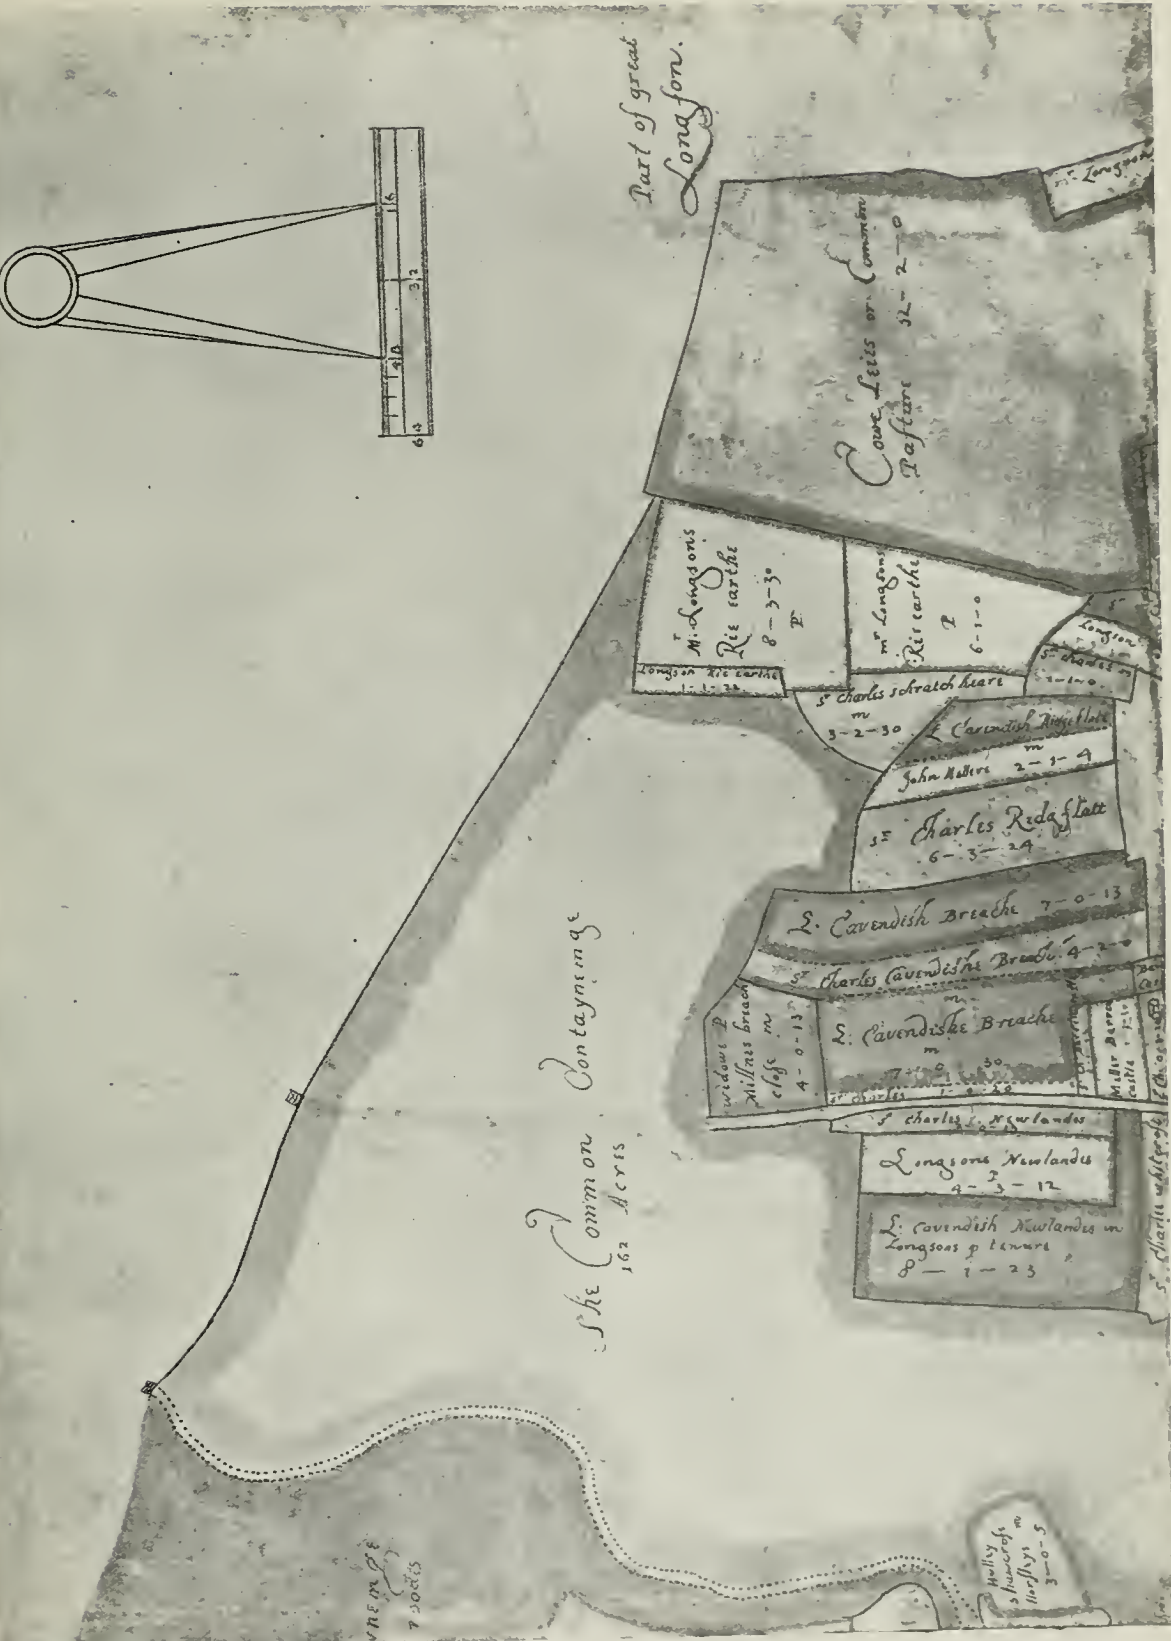 Part of great
Longson.
Cowe Leits or Common
Pasture 52-2-0
mr Longson
Mr: Longsons
Rie earthe
8-3-30
P
mr Longsons
Rie earthe
P
6-1-0
Longson Rie earthe
1-1-22
Longson
Sr Charles m
1-1-0
Sr Charles schratch heare
m
3-2-30
L Cavendish Ridgflatt
John Mellers m
2-1-4
Sr Charles Ridgflatt
6-3-24
L. Cavendish Breache 7-0-13
Sr Charles Cavendishe Breach 4-2-0
m
widowe P
Millnes breach
close m
4-0-13
L. Cavendishe Breache
m
7-0-30
Sr Charles 1-0-20
Meller Barren
castle
Sr Charles Newlandes
Longsons Newlandes
P
4-3-12
L. Cavendish Newlandes in
Longsons p tenure
8-1-23
Sr Charles whitcroft
The Common Contayninge
162 Acres
Hulley
m
Horsleys
3-0-5